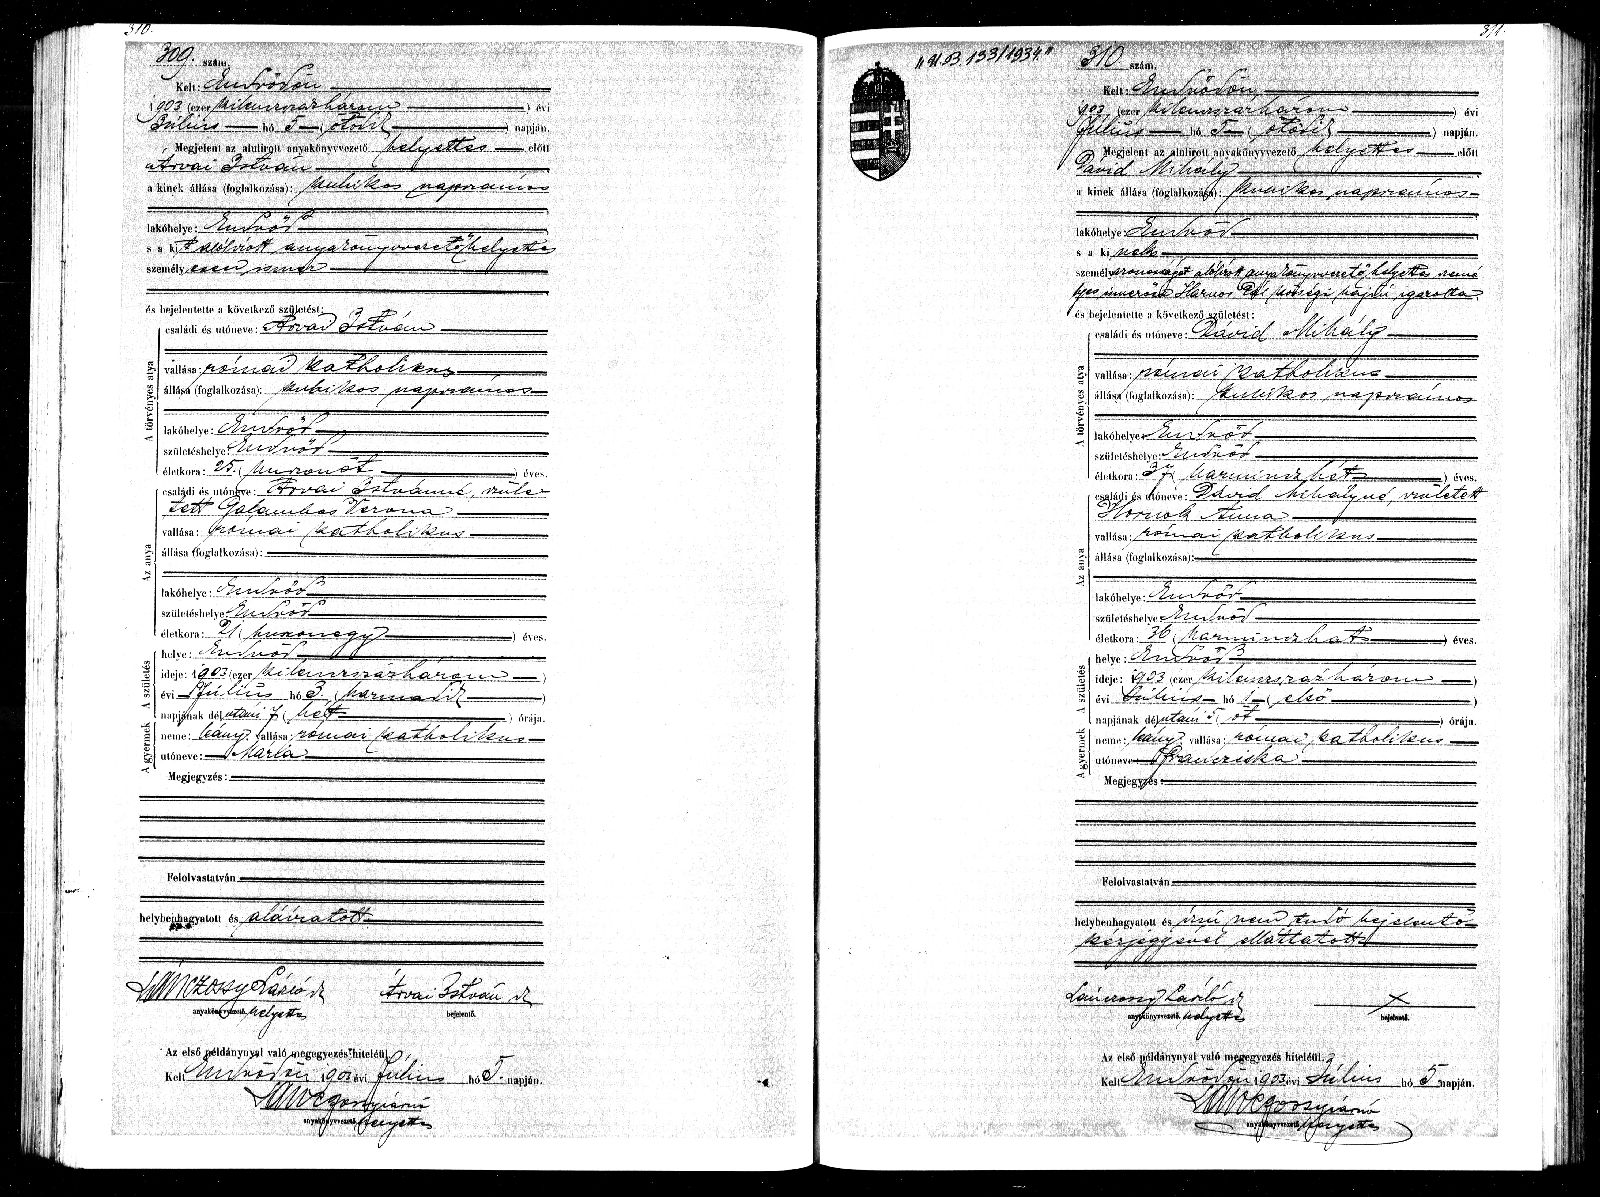 310.
309. szám.
Kelt: Endrődön
1903 (ezer kilenczszázhárom) évi
Július hó 5 (ötödik) napján.
Megjelent az alulirott anyakönyvvezető helyettes előtt
Árvai István
a kinek állása (foglalkozása): kubikos napszámos
lakóhelye: Endrőd
s a kit alólirott anyakönyvvezető helyettes
személyesen ismer
és bejelentette a következő születést:
A törvényes atya
családi és utóneve: Árvai István
vallása: római katholikus
állása (foglalkozása): kubikos napszámos
lakóhelye: Endrőd
születéshelye: Endrőd
életkora: 25. (huszonöt) éves.
Az anya
családi és utóneve: Árvai Istvánné, szüle-
tett Galambos Verona
vallása: római katholikus
állása (foglalkozása):
lakóhelye: Endrőd
születéshelye: Endrőd
életkora: 21 (huszonegy) éves.
A születés
helye: Endrőd
ideje: 1903 (ezer kilenczszázhárom)
évi Július hó 3. (harmadik)
napjának dél utáni 7 (hét) órája.
A gyermek
neme: leány vallása: római katholikus
utóneve: Mária
Megjegyzés:
Felolvastatván
helybenhagyatott és aláiratott
Lánczossy László sk Árvai István sk
anyakönyvvezető helyettes bejelentő.
Az első példánynyal való megegyezés hiteléül.
Kelt Endrődön 1903 évi Július hó 5. napján.
anyakönyvvezető helyettes
311.
"U.B. 133/1934."
310 szám.
Kelt: Endrődön
1903 (ezer kilenczszázhárom) évi
Július hó 5 (ötödik) napján.
Megjelent az alulirott anyakönyvvezető helyettes előtt
Dávid Mihály
a kinek állása (foglalkozása): kubikos napszámos
lakóhelye: Endrőd
s a kinek
személyazonosságát alólirott anyakönyvvezető helyettes szemé
lyes ismerőse Harnos Pál községi hajdú igazolta
és bejelentette a következő születést:
A törvényes atya
családi és utóneve: Dávid Mihály
vallása: római katholikus
állása (foglalkozása): kubikos napszámos
lakóhelye: Endrőd
születéshelye: Endrőd
életkora: 37 (harminczhét) éves.
Az anya
családi és utóneve: Dávid Mihályné, született
Hornok Anna
vallása: római katholikus
állása (foglalkozása):
lakóhelye: Endrőd
születéshelye Endrőd
életkora: 36 (harminczhat) éves.
A születés
helye: Endrőd
ideje: 1903 (ezer kilenczszázhárom)
évi Július hó 1 (első)
napjának dél utáni 5 (öt) órája.
A gyermek
neme: leány vallása: római katholikus
utóneve: Francziska
Megjegyzés:
Felolvastatván
helybenhagyatott és irni nem tudó bejelentő
kézjegyével elláttatott
Lánczossy László sk X
anyakönyvvezető helyettes bejelentő.
Az első példánynyal való megegyezés hiteléül.
Kelt Endrődön 1903 évi Július hó 5 napján.
anyakönyvvezető helyettes